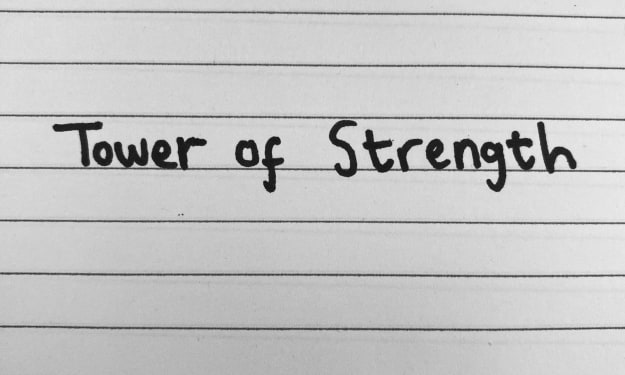 Tower of Strength